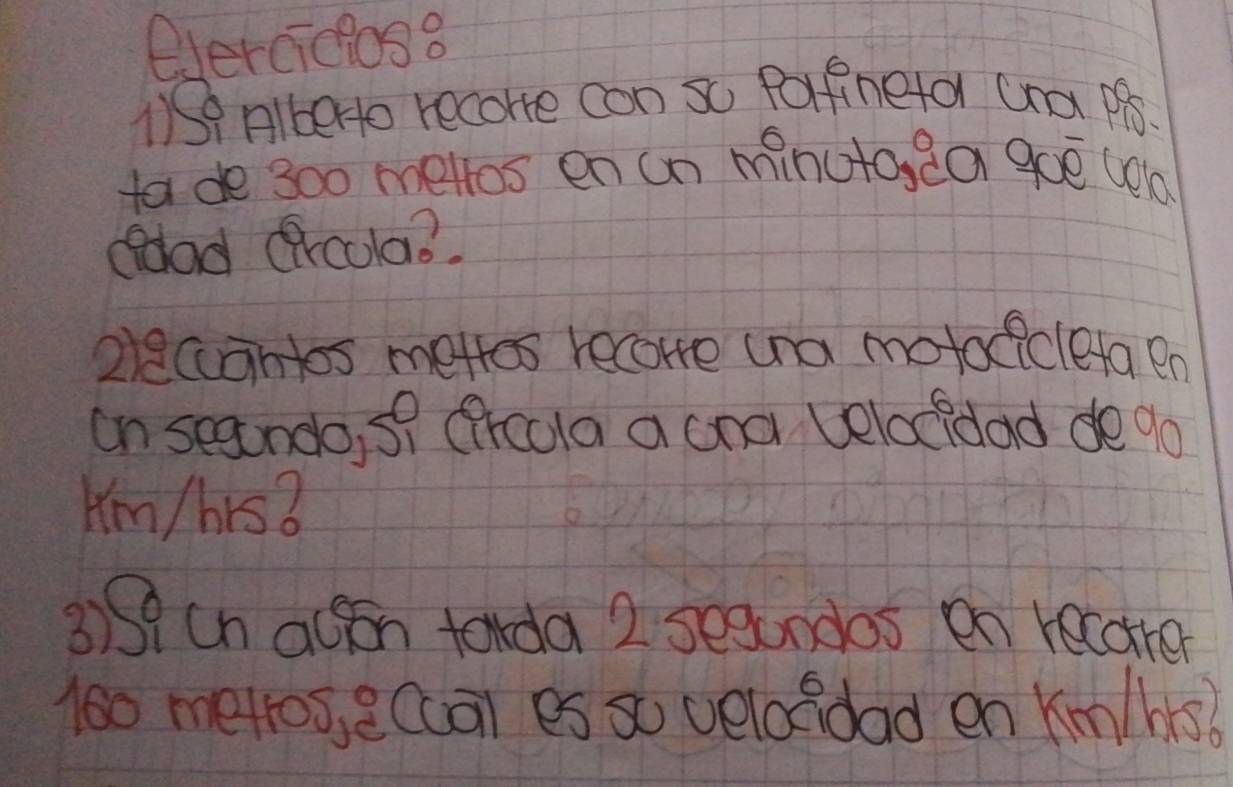 Ejercicios:
1) Si Alberto recorre con su Patineta una pis-
ta de 300 metros en un minuto, ¿a qué velo
cidad circula?.
2) ¿Cuántos metros recorre una motocicleta en
un segundo, si circula a una velocidad de 90
Km/hrs?
3) Si un avión tarda 2 segundos en recorrer
160 metros, ¿Cuál es su velocidad en Km/hrs?